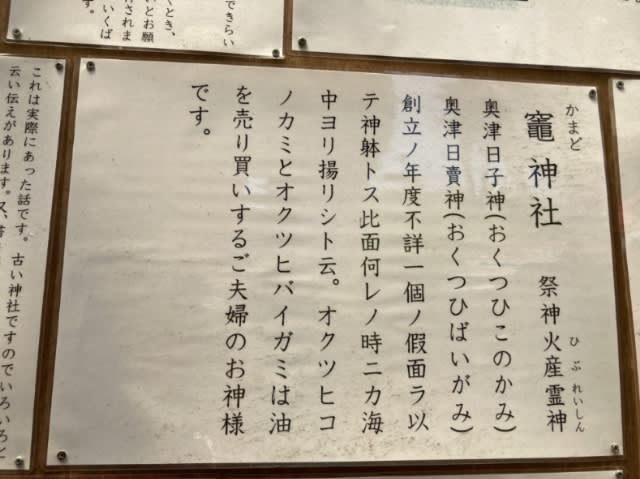 できらい
くとき、
いとお願
されま
いくば
す。
かまど
竈神社　祭神火産霊神
ひ ぶ れいしん
奥津日子神(おくつひこのかみ)
奥津日賣神(おくつひばいがみ)
創立ノ年度不詳一個ノ假面ラ以
テ神躰トス此面何レノ時ニカ海
中ヨリ揚リシト云。オクツヒコ
ノカミとオクツヒバイガミは油
を売り買いするご夫婦のお神様
です。
これは実際にあった話です。古い神社ですのでいろいろと
云い伝えがあります。又、